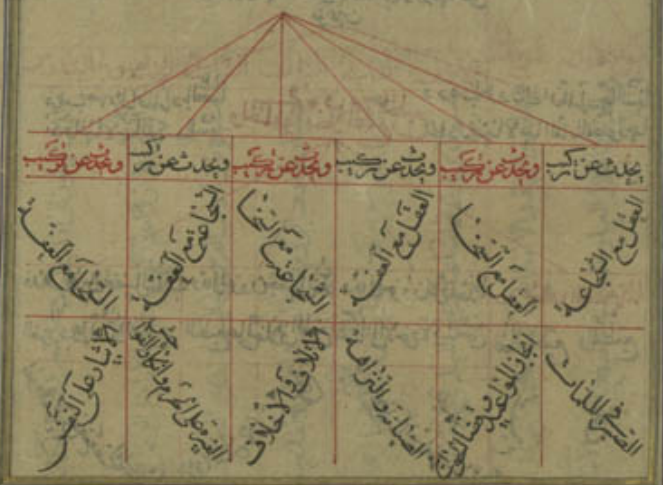 يحدث عن تركيب
ويحدث عن تركيب
ويحدث عن تركيب
ويحدث عن تركيب
ويحدث عن تركيب
ويحدث عن تركيب
العقل مع الشجاعة
العقل مع السخا
العقل مع العفة
الشجاعة مع السخا
الشجاعة مع العفة
السخا مع العفة
الصبر في الملمات
انجاز المواعيد
الصيانة والنزاهة
الاتلاف والاخلاف
الغيرة على الحرم وانكار
الايثار على النفس